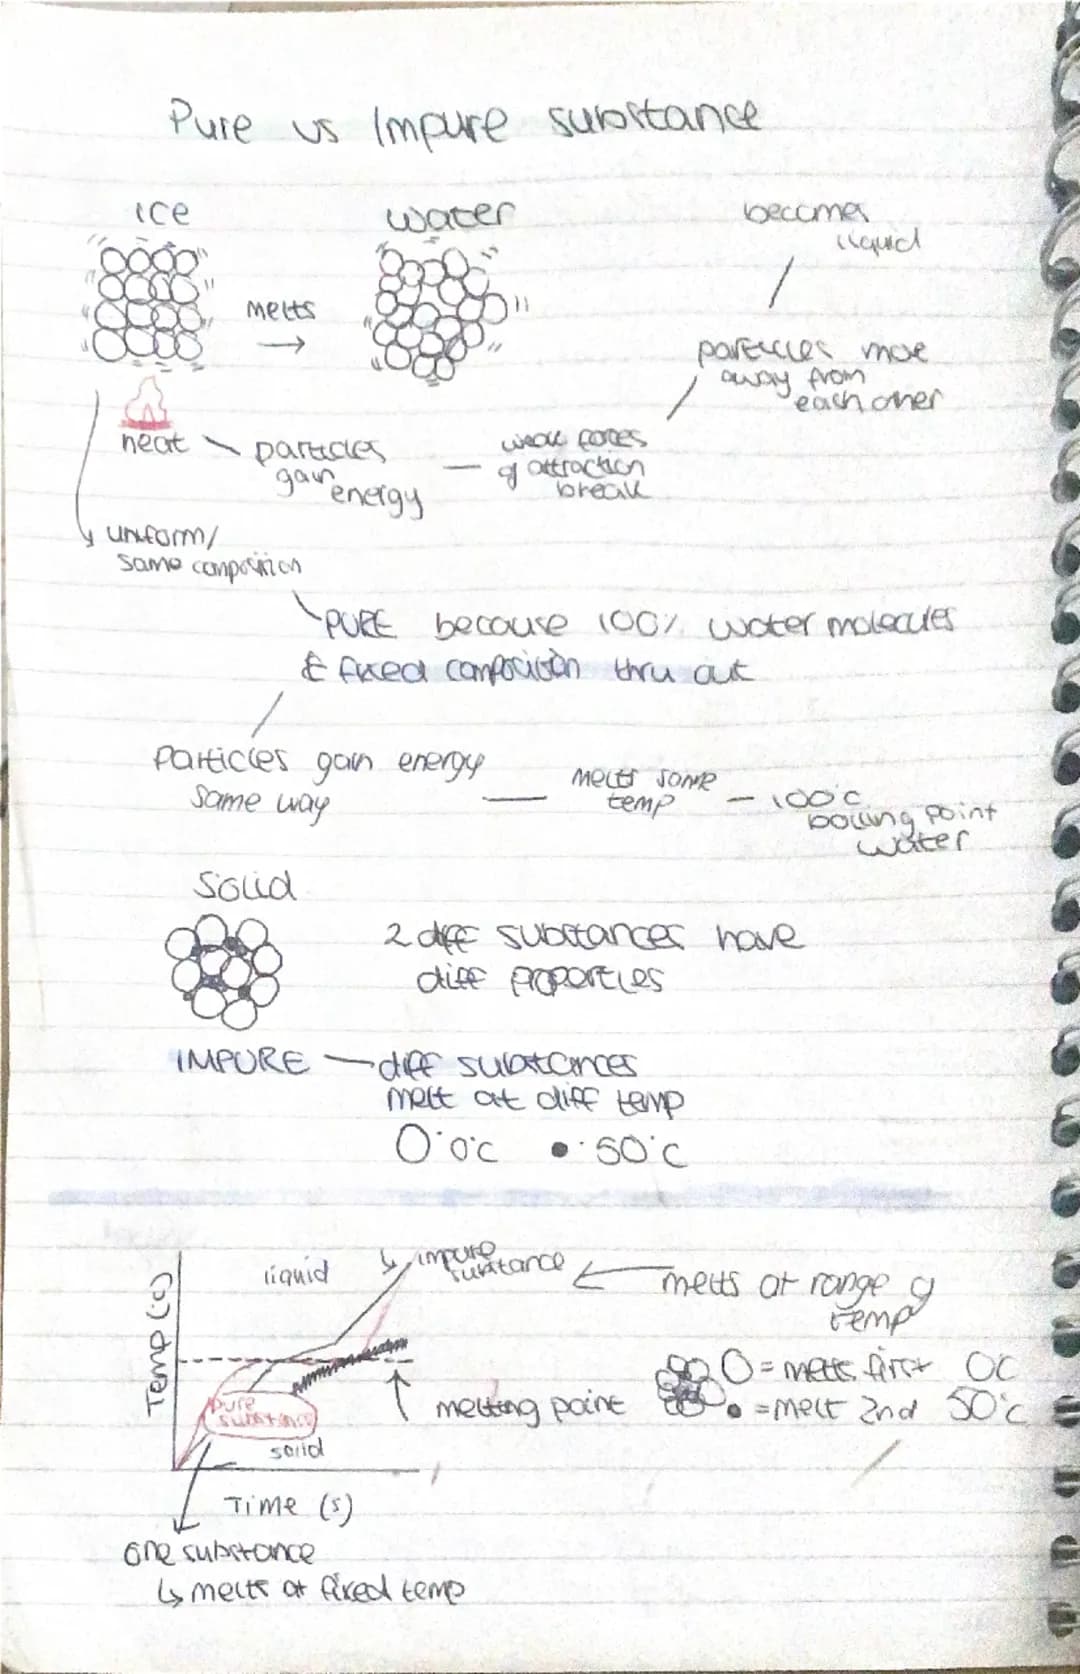 Pure vs Impure substance
ice
water
becomes
liquid
melts
particles move
away from
each other
heat
particles
gain
energy
weak forces
of attraction
break
uniform/
same composition
PURE because 100% water molecules
& fixed composition thru out
Particles gain energy
same way
melts same
temp
100°C
boiling point
water
Solid
2 diff substances have
diff properties
IMPURE
diff substances
melt at diff temp
0°C
50°C
Temp (°C)
liquid
impure
substance
melts at range of
temp
pure
substance
solid
melting point
= melts first 0C
= melt 2nd 50°C
Time (s)
One substance
melts at fixed temp